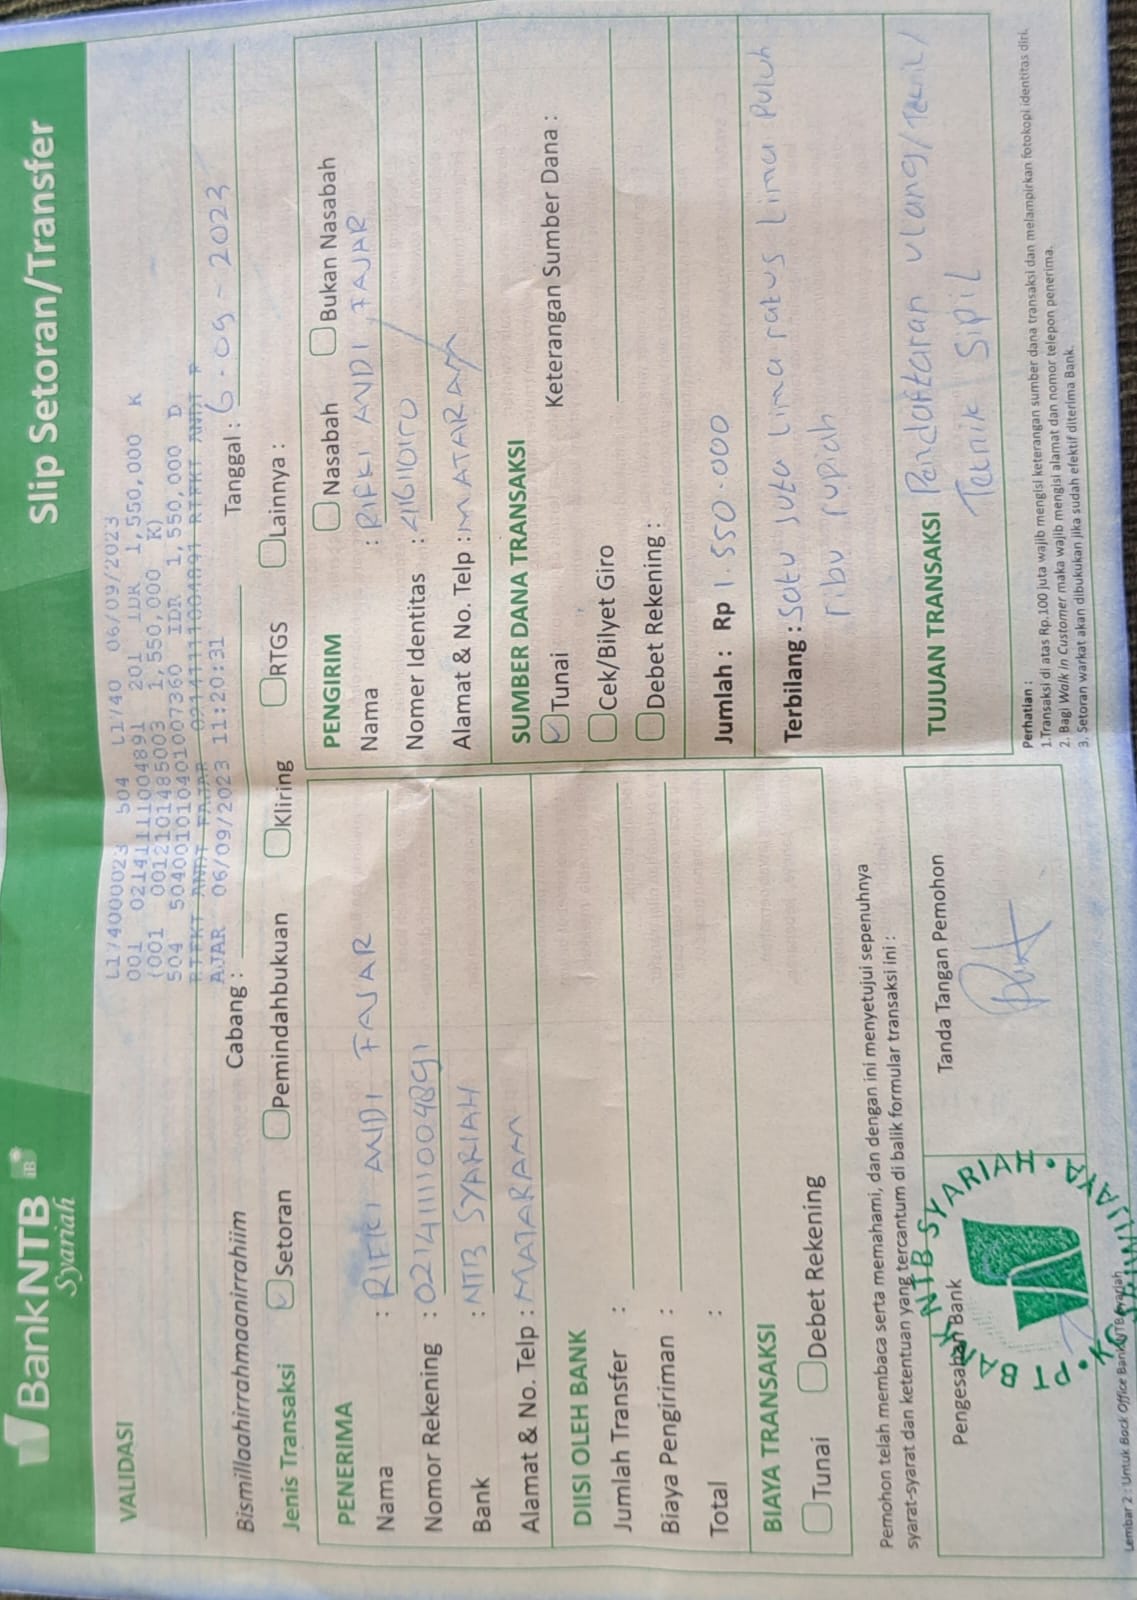 BankNTB iB
Syariah
Slip Setoran/Transfer
VALIDASI
L1740000023 504 L1740 06/09/2023
001 02141111004891 201 IDR 1,550,000 K
(001 0012101485003 1,550,000 K)
504 504001010401007360 IDR 1,550,000 D
RIFKI ANDI FAJAR 02141111004891 RIFKI ANDI F
AJAR 06/09/2023 11:20:31
Bismillaahirrahmaanirrahiim
Cabang :
Tanggal : 6-09-2023
Jenis Transaksi Setoran Pemindahbukuan Kliring RTGS Lainnya :
PENERIMA
Nama : RIFKI ANDI FAJAR
Nomor Rekening : 02141111004891
Bank : NTB SYARIAH
Alamat & No. Telp : MATARAM
DIISI OLEH BANK
Jumlah Transfer :
Biaya Pengiriman :
Total :
BIAYA TRANSAKSI
Tunai Debet Rekening
PENGIRIM
Nasabah Bukan Nasabah
Nama : RIFKI ANDI FAJAR
Nomer Identitas :
Alamat & No. Telp : MATARAM
SUMBER DANA TRANSAKSI
Tunai Keterangan Sumber Dana :
Cek/Bilyet Giro
Debet Rekening :
Jumlah : Rp 1.550.000
Terbilang : Satu Juta Lima ratus Lima Puluh
ribu rupiah
TUJUAN TRANSAKSI Pendaftaran Ulang/Teknik/
Teknik Sipil
Pemohon telah membaca serta memahami, dan dengan ini menyetujui sepenuhnya
syarat-syarat dan ketentuan yang tercantum di balik formular transaksi ini :
Pengesahan Bank
Tanda Tangan Pemohon
PT BANK NTB SYARIAH
Perhatian :
1.Transaksi di atas Rp.100 juta wajib mengisi keterangan sumber dana transaksi dan melampirkan fotokopi identitas diri.
2. Bagi Walk in Customer maka wajib mengisi alamat dan nomor telepon penerima.
3. Setoran warkat akan dibukukan jika sudah efektif diterima Bank.
Lembar 2 : Untuk Back Office Bank NTB Syariah